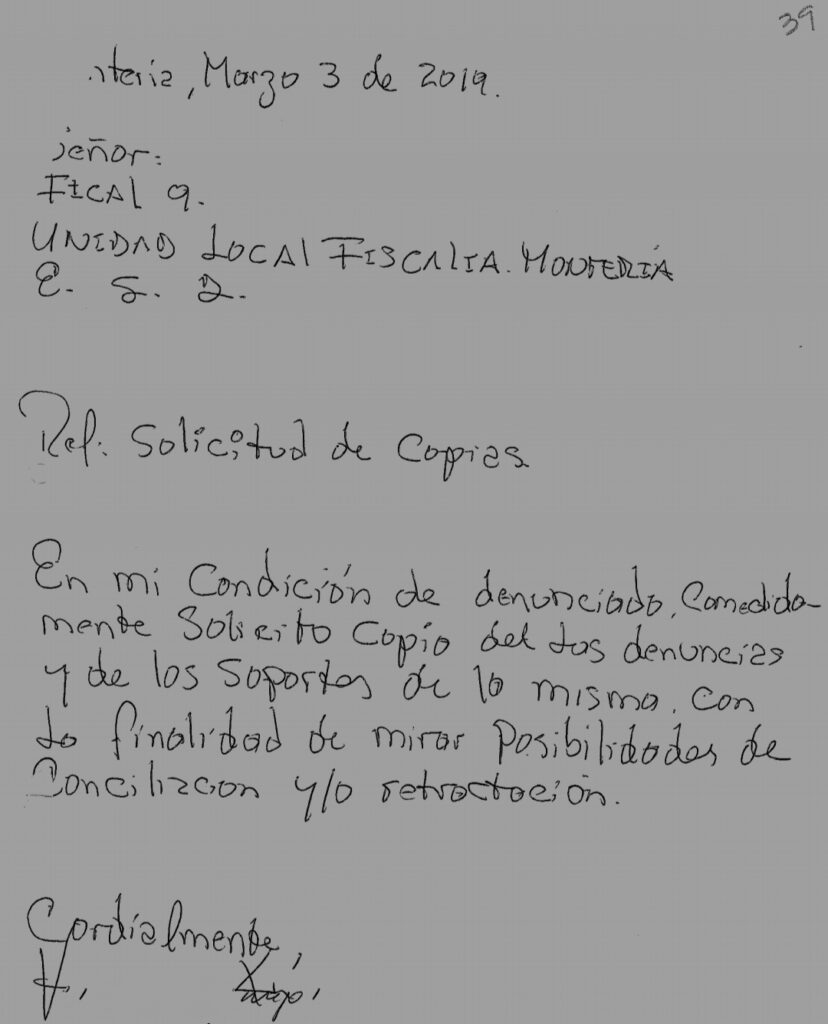 39
nteria, Marzo 3 de 2019.
señor:
FICAL 9.
UNIDAD LOCAL FISCALIA. MONTERIA
E. S. D.
Ref: Solicitud de Copias
En mi Condición de denunciado, Comedida-
mente Solicito Copia de las denuncias
y de los Soportes de la misma, con
la finalidad de mirar Posibilidades de
Conciliacion y/o retractación.
Cordialmente,